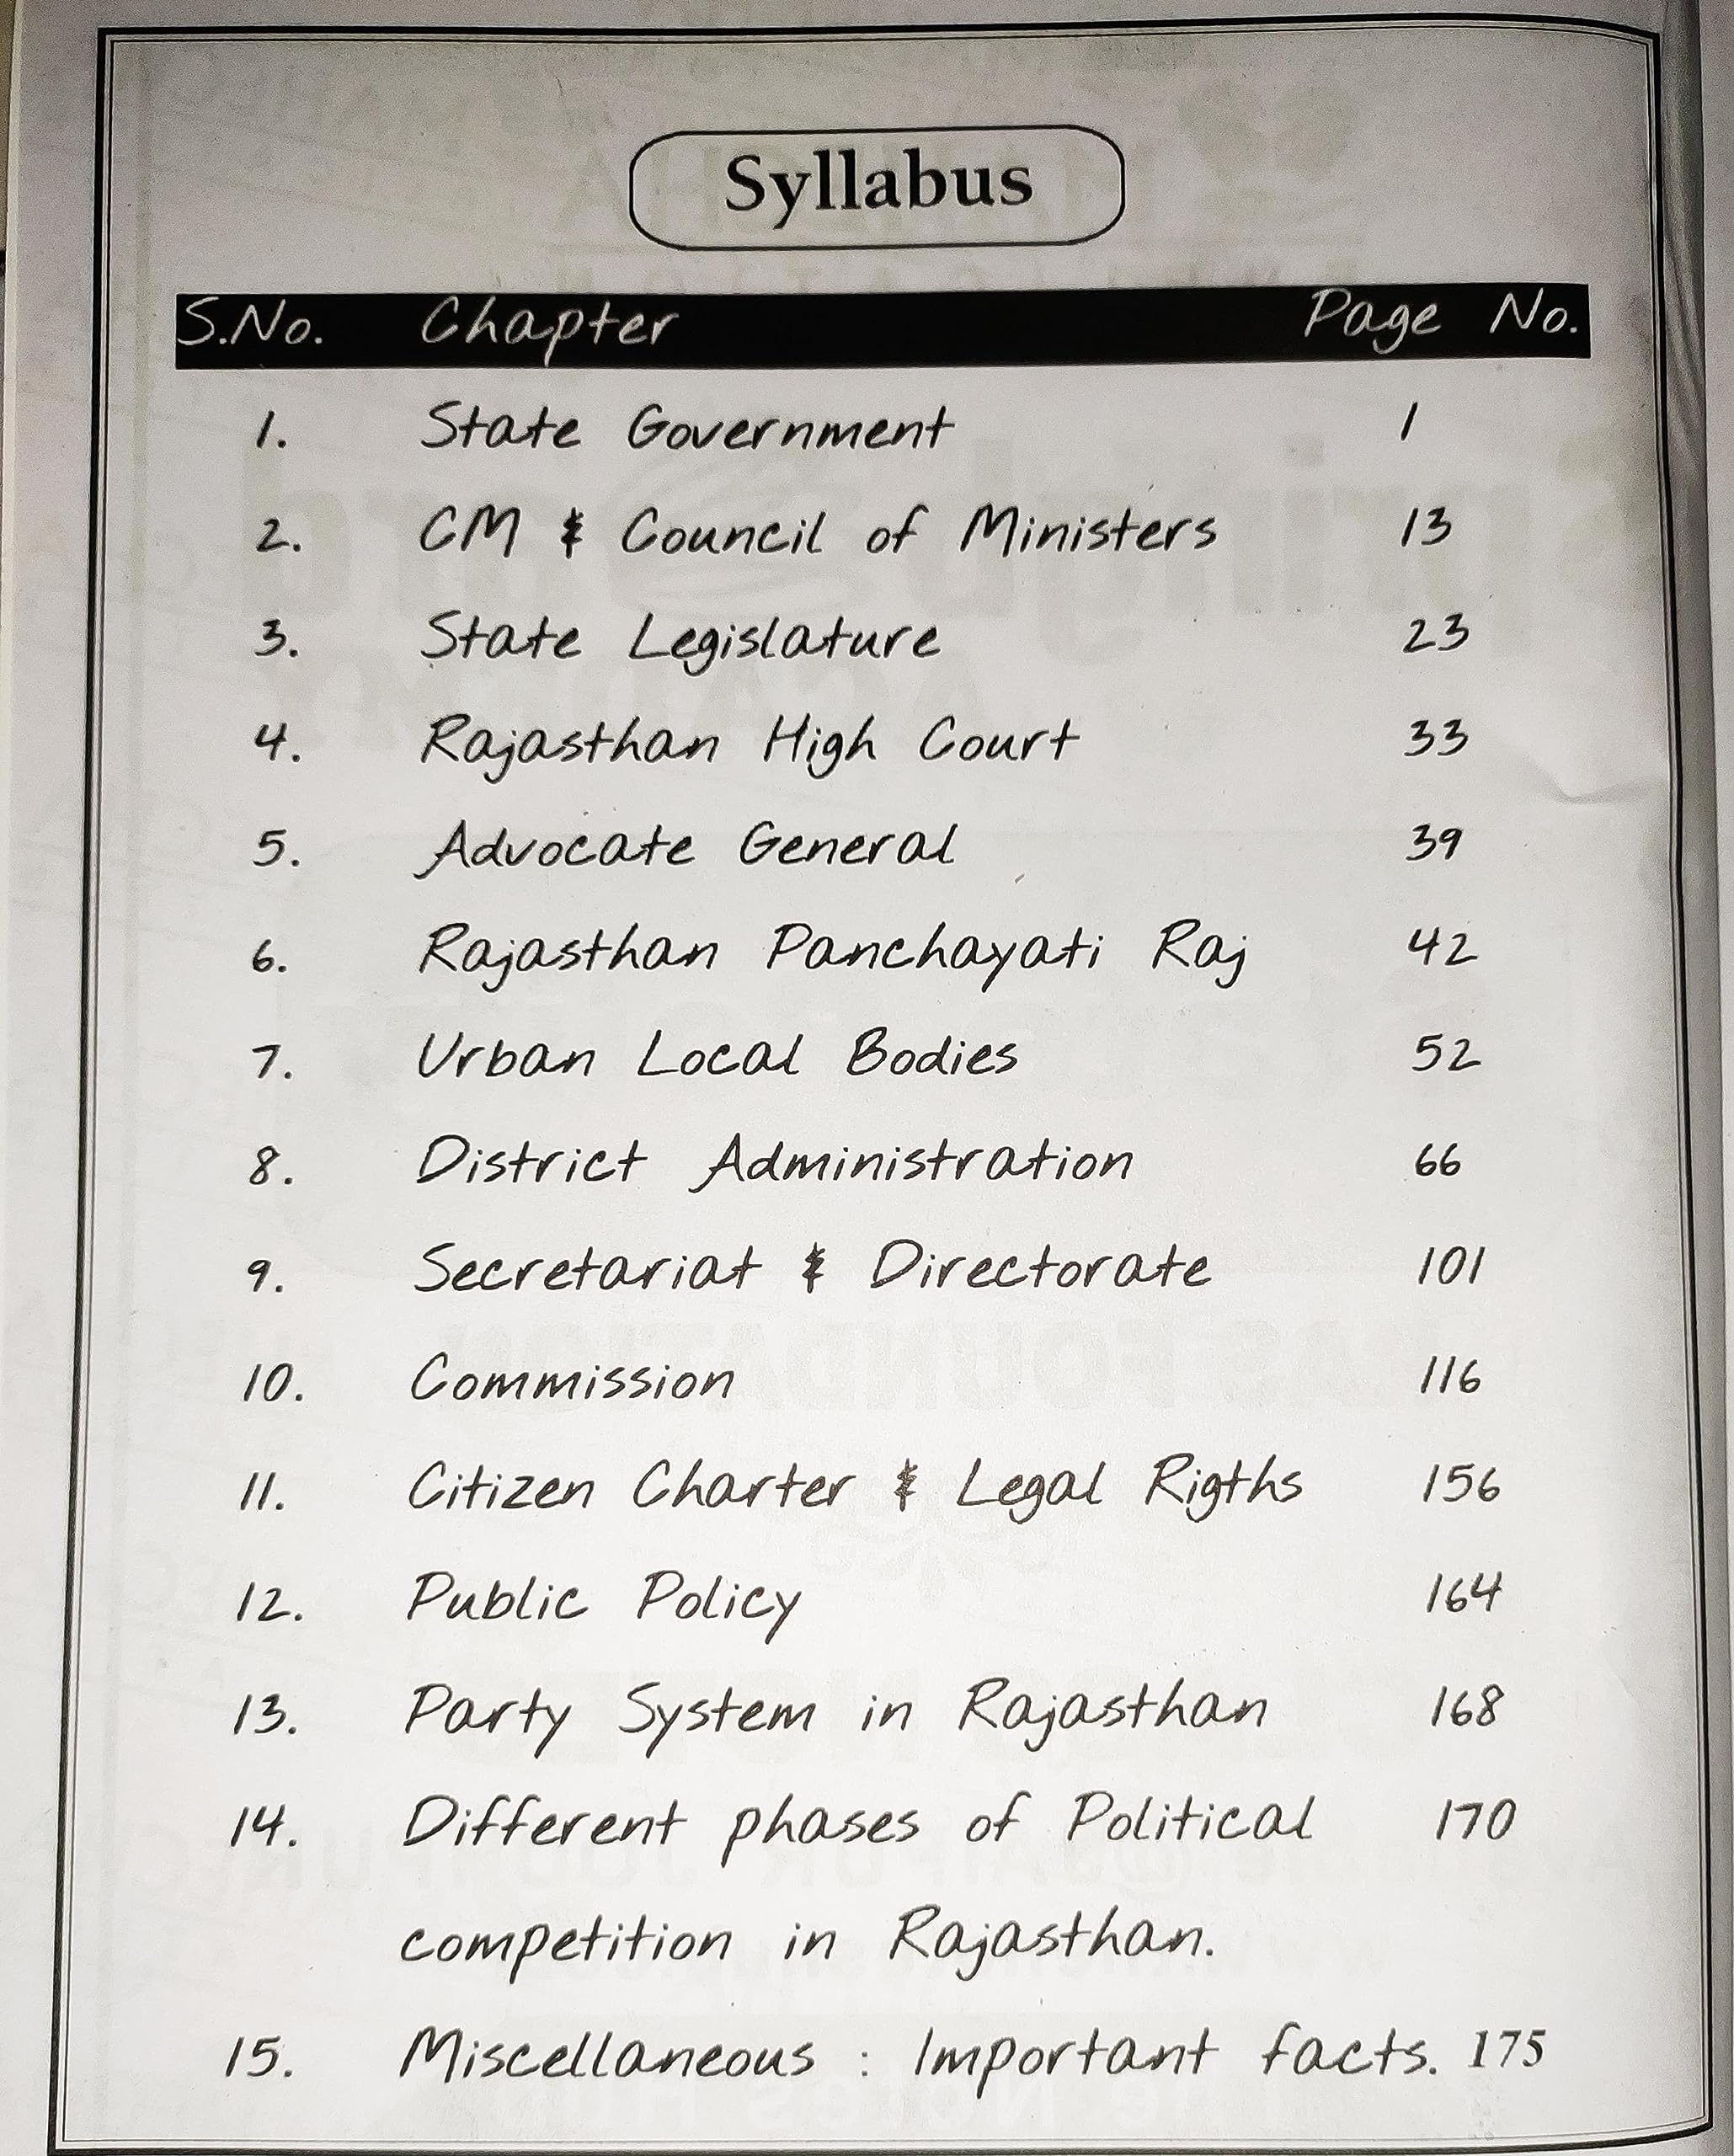 Syllabus
S.No. Chapter Page No.
1. State Government 1
2. CM & Council of Ministers 13
3. State Legislature 23
4. Rajasthan High Court 33
5. Advocate General 39
6. Rajasthan Panchayati Raj 42
7. Urban Local Bodies 52
8. District Administration 66
9. Secretariat & Directorate 101
10. Commission 116
11. Citizen Charter & Legal Rigths 156
12. Public Policy 164
13. Party System in Rajasthan 168
14. Different phases of Political 170
competition in Rajasthan.
15. Miscellaneous : Important facts. 175